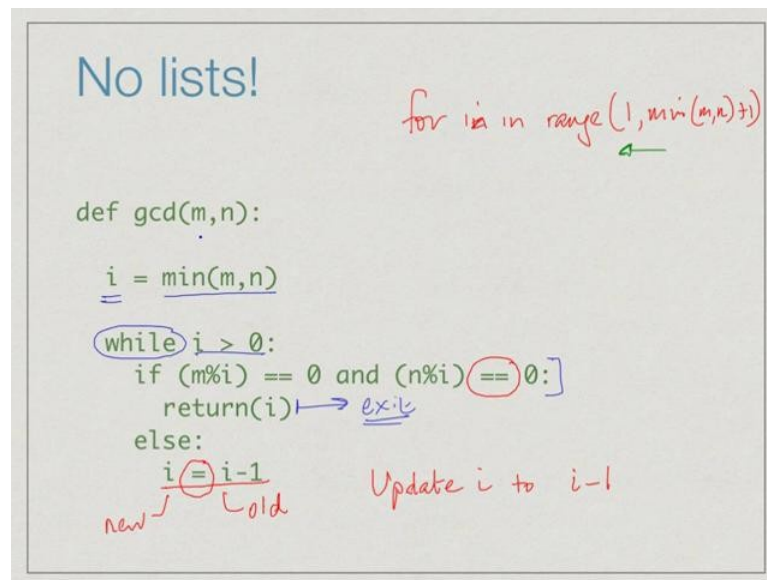 No lists!
for i in in range (1, min(m,n)+1)
def gcd(m,n):
i = min(m,n)
while i > 0:
if (m%i) == 0 and (n%i) == 0:
return(i) exit
else:
i = i-1
Update i to i-1
new old